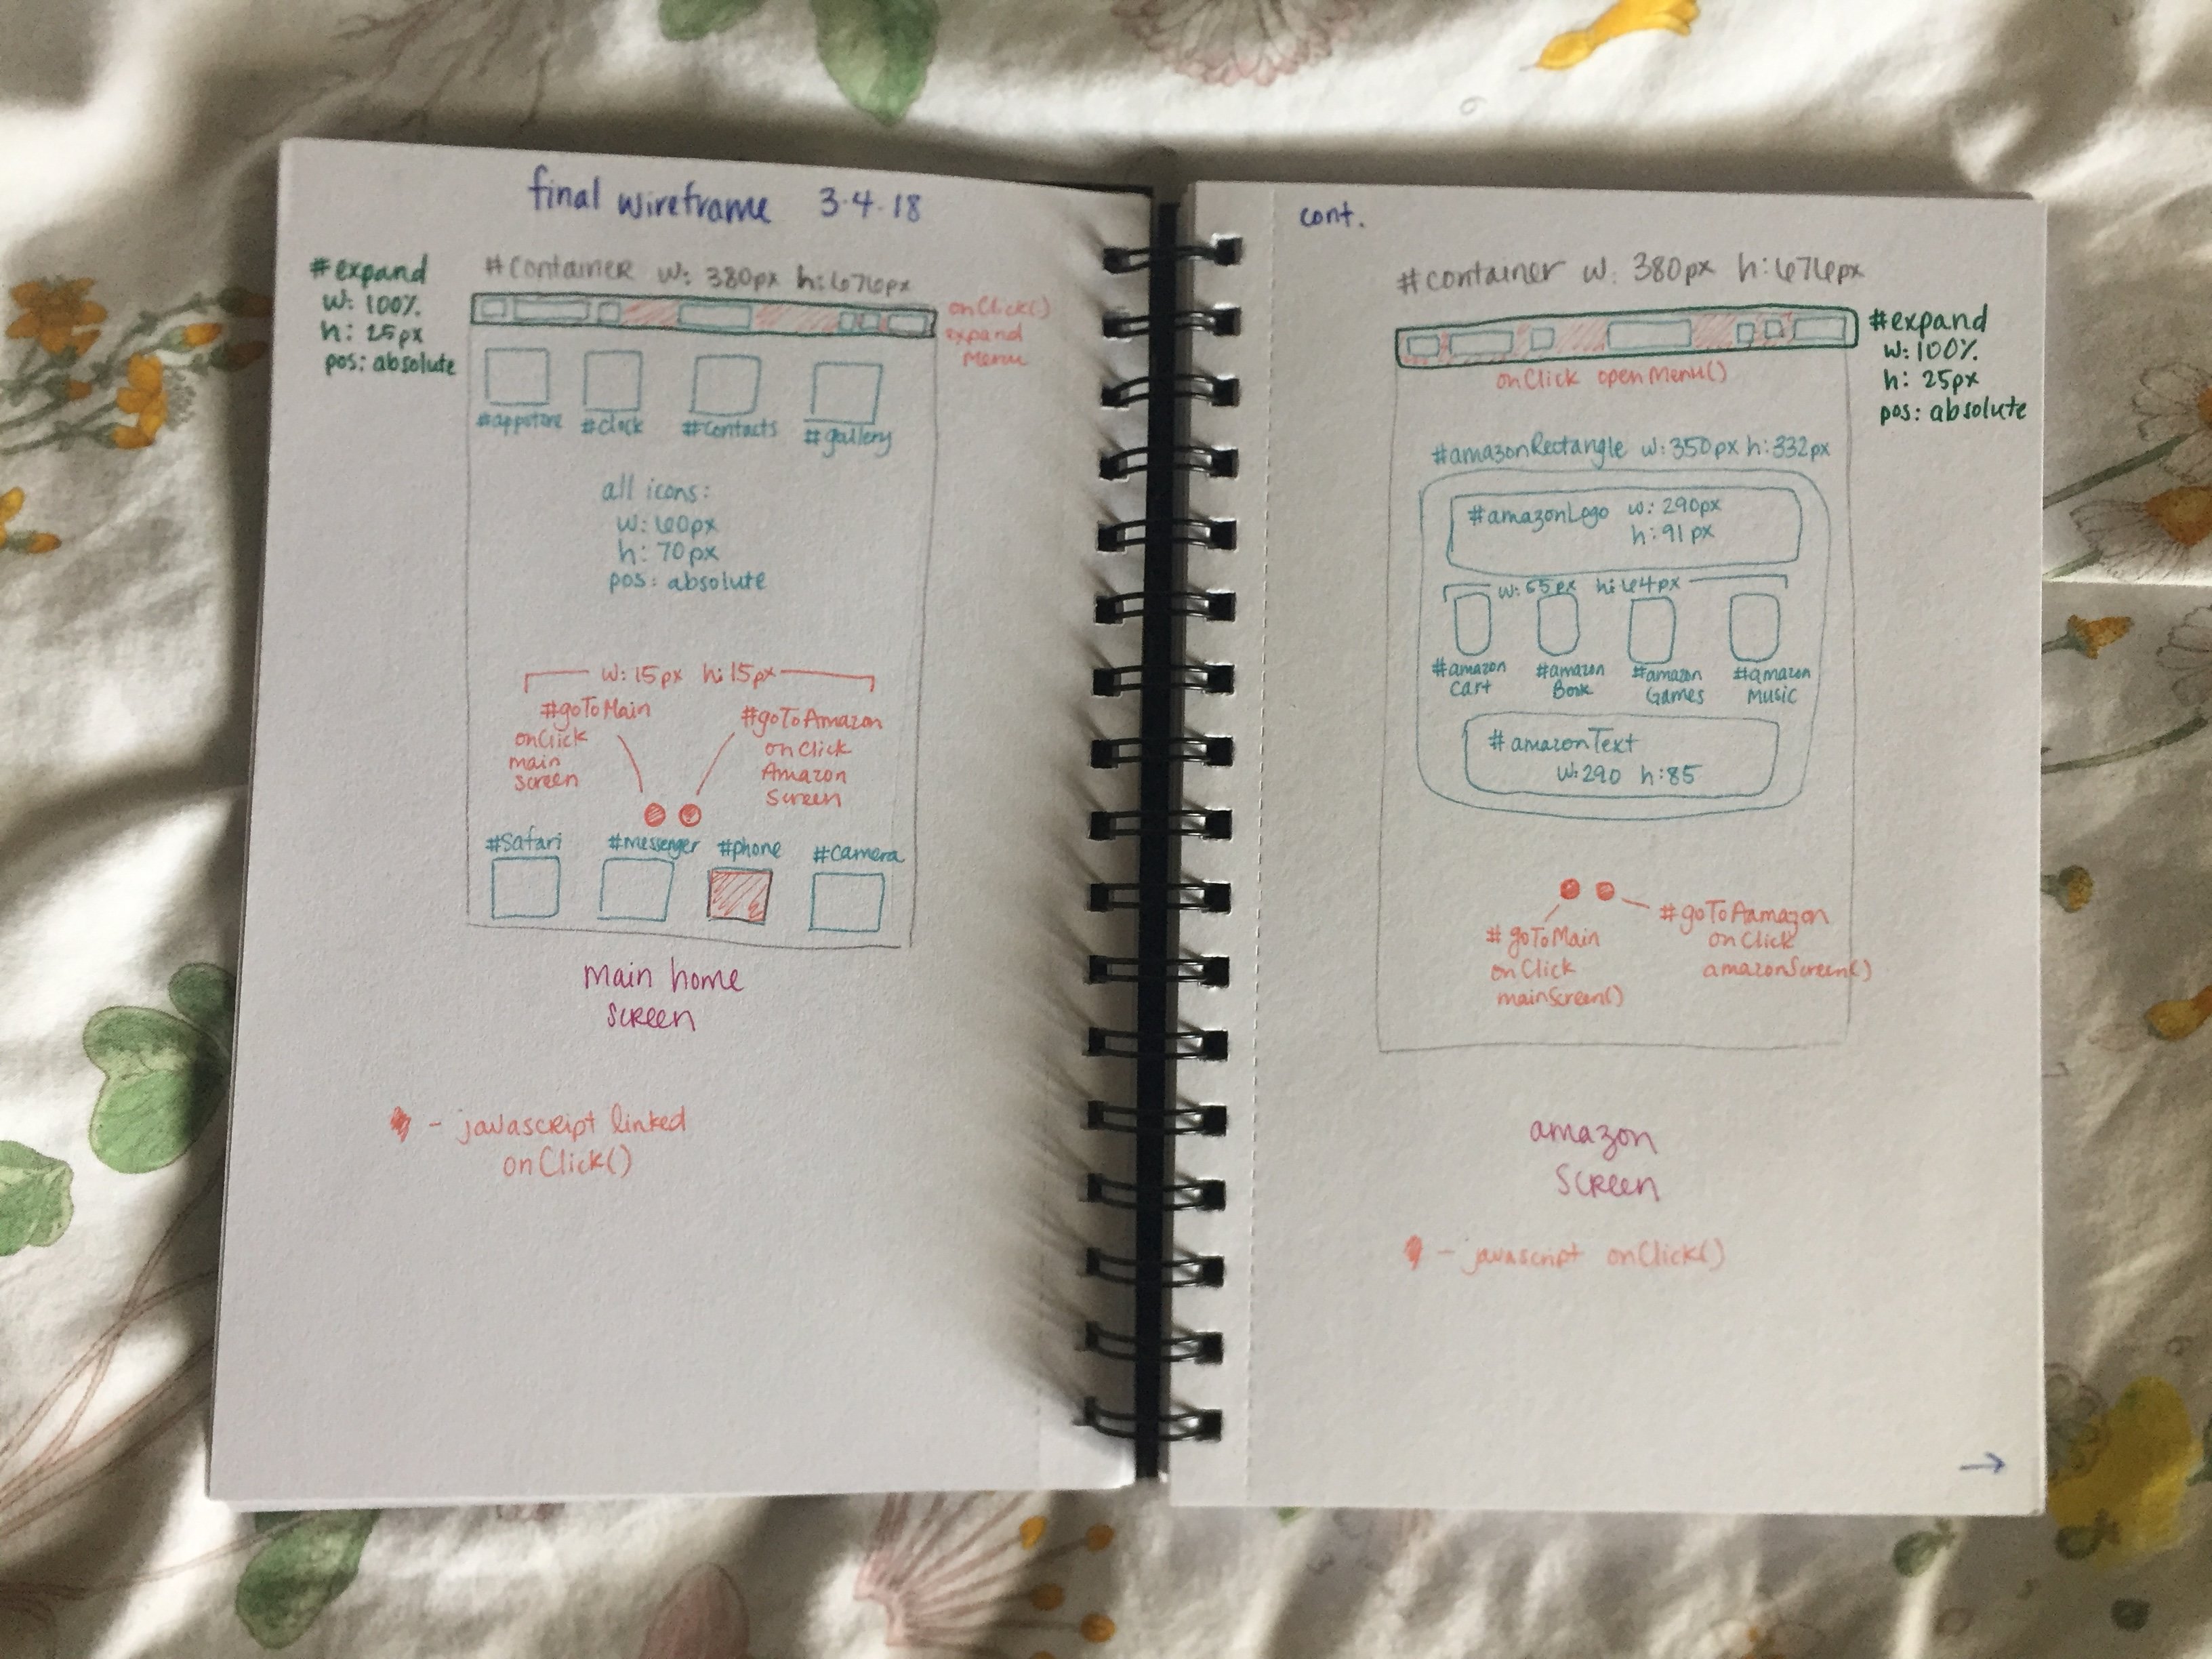 final wireframe 3.4.18
#expand
w: 100%
h: 25px
pos: absolute
#container w: 380px h: 676px
onClick()
expand
Menu
#appstore #clock #contacts #gallery
all icons:
w: 60px
h: 70px
pos: absolute
w: 15px h: 15px
#goToMain
onClick
main
screen
#goToAmazon
onClick
Amazon
Screen
#Safari #messenger #phone #camera
main home
screen
- javascript linked
onClick()
cont.
#container w: 380px h: 676px
#expand
w: 100%
h: 25px
pos: absolute
onClick openMenu()
#amazonRectangle w: 350px h: 332px
#amazonLogo w: 290px
h: 91px
w: 55px h: 64px
#amazon
Cart
#amazon
Book
#amazon
Games
#amazon
Music
#amazonText
w: 290 h: 85
#goToMain
onClick
mainScreen()
#goToAamazon
onClick
amazonScreen()
amazon
screen
- javascript onClick()
→